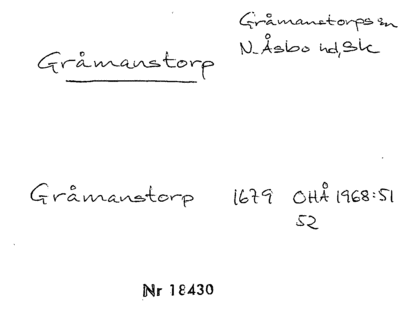 Gråmanstorps sn
N. Åsbo hd, Sk
Gråmanstorp
Gråmanstorp 1679 OHÅ 1968:51
52
Nr 18430